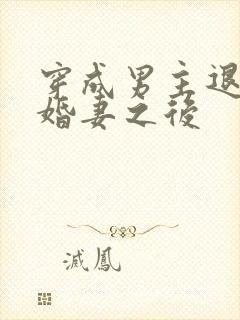 穿成男主退
婚妻之後
滅鳳